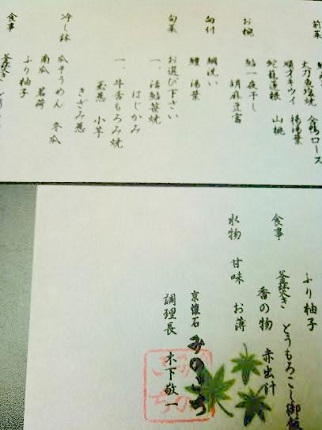 前菜
太刀魚塩焼 合鴨ロース
順才キウイ 湯葉
蛇籠蓮根 山桃
お椀
鮎一夜干し
胡麻豆富
向付
鯛洗い
鱧 湯葉
旬菜
お選び下さい
一、活鮎笹焼
はじかみ
一、牛香もろみ焼
玉葱 小芋
きざみ葱
冷し鉢
瓜そうめん 冬瓜
南瓜 茗荷
ふり柚子
食事
釜炊き とうも
ふり柚子
食事
釜炊き とうもろこし御飯
香の物 赤出汁
水物 甘味 お薄
京懐石 みのきち
調理長 木下敬一